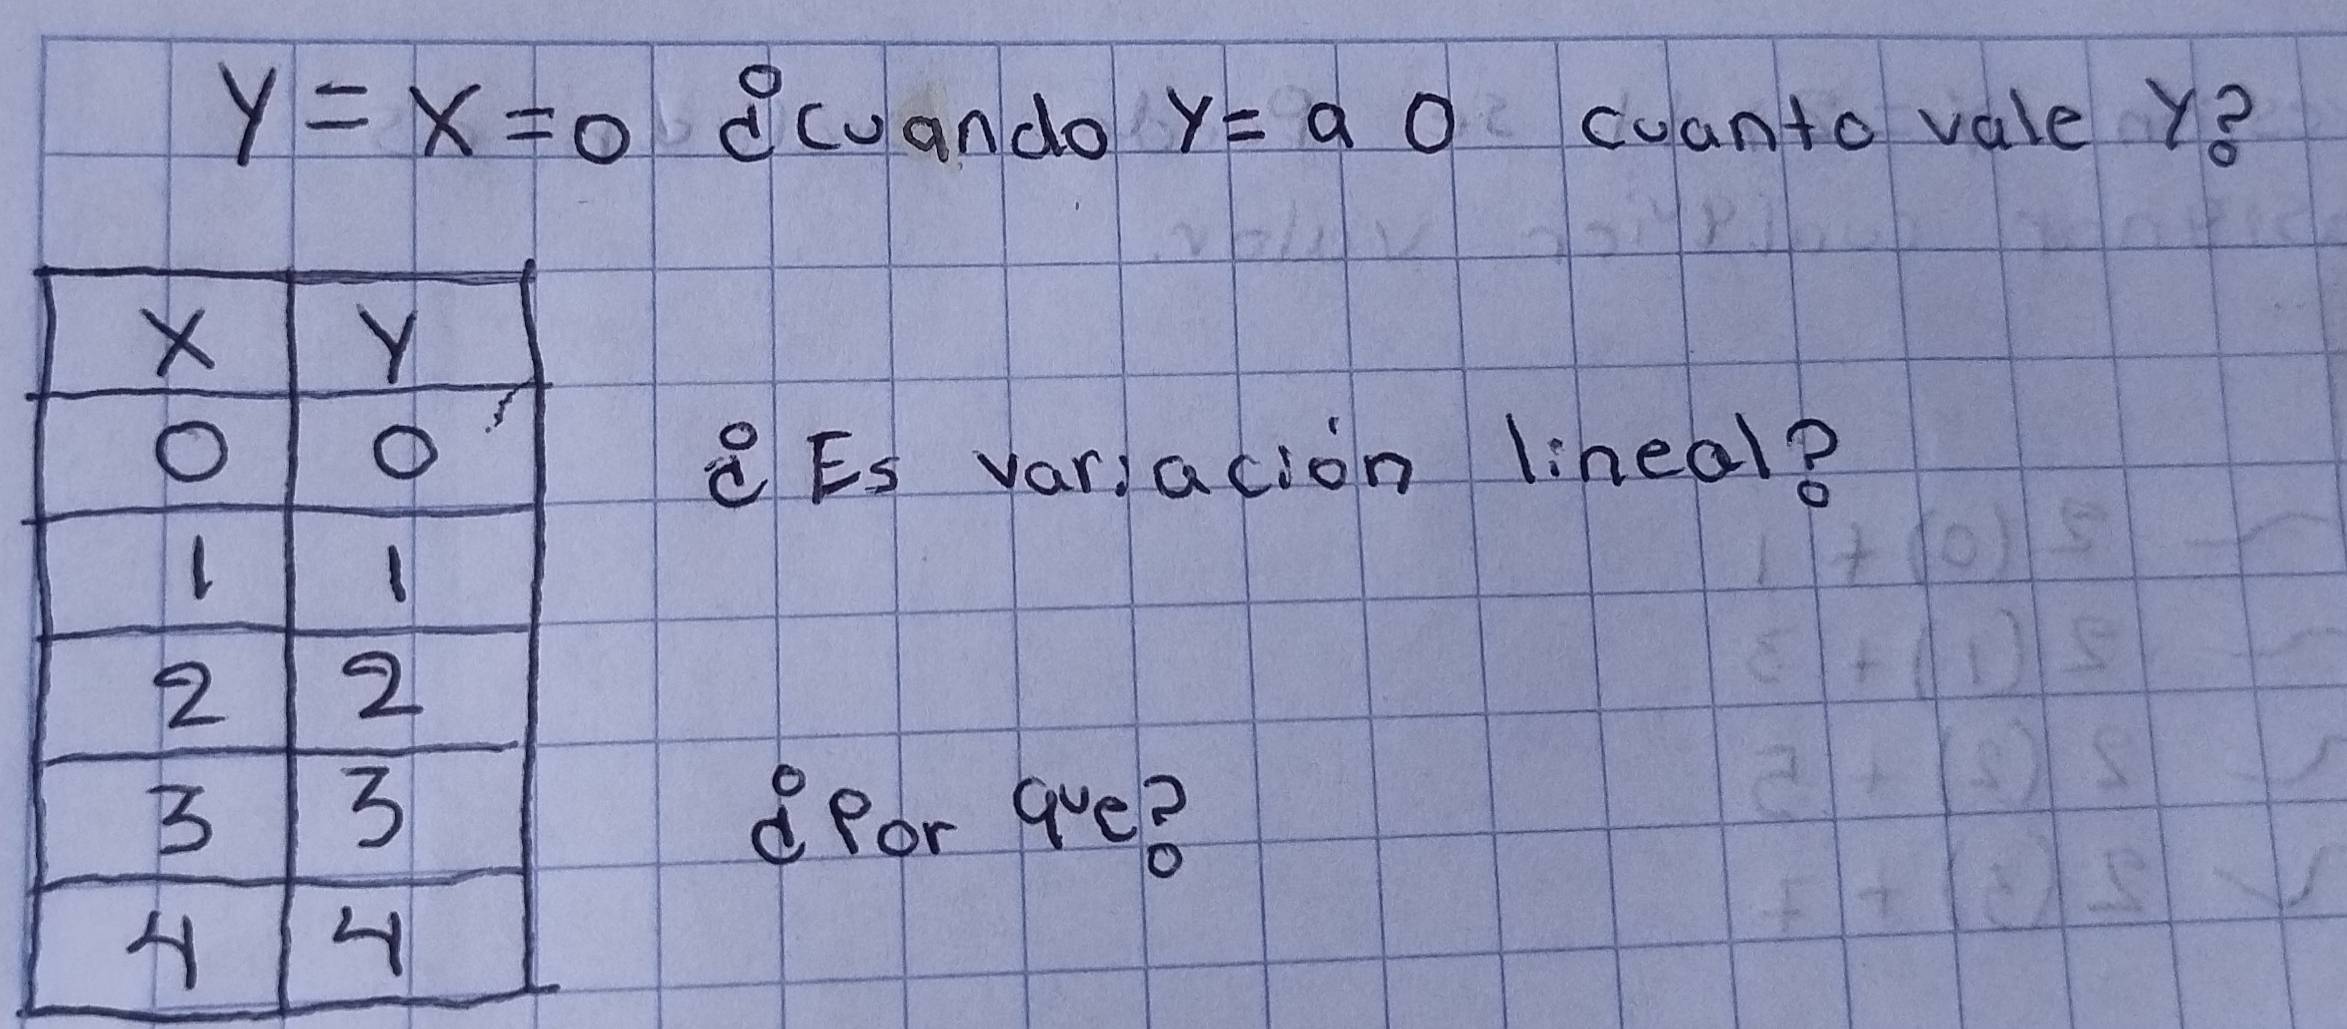 Y = X = 0 ¿cuando Y = a 0 cuanto vale Y?
X Y
0 0
¿Es variación lineal?
1 1
2 2
3 3
¿Por que?
4 4